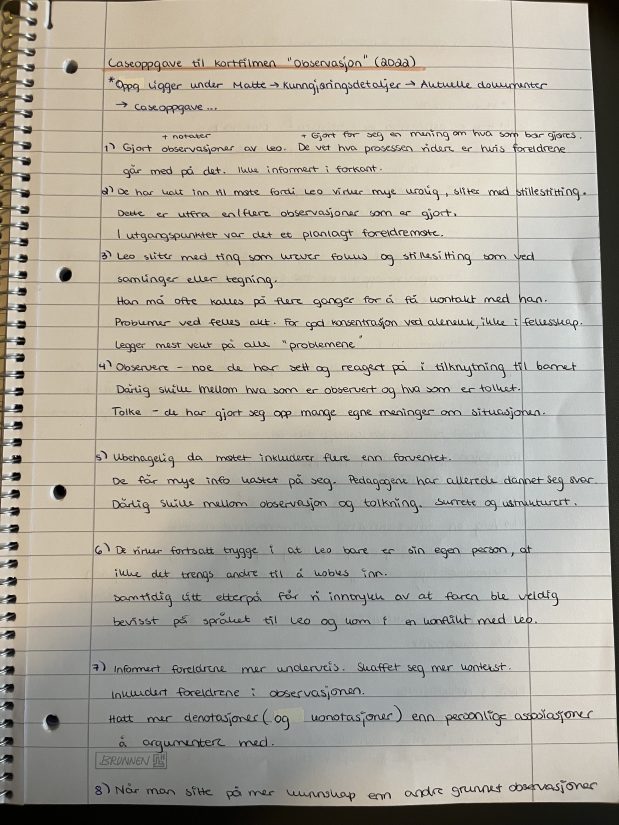 Caseoppgave til kortfilmen "Observasjon" (2022)
*Oppg ligger under Møtte → Kunngjøringsdetaljer → Aktuelle dokumenter
→ Caseoppgave...
+ notater + Gjort for seg en mening om hva som bør gjøres.
1) Gjort observasjoner av Leo. De vet hva prosessen videre er hvis foreldrene
går med på det. Ikke informert i forkant.
2) De har kalt inn til møte fordi Leo virker mye urolig, sliter med stillesitting.
Dette er utfra en/flere observasjoner som er gjort.
I utgangspunktet var det et planlagt foreldremøte.
3) Leo sliter med ting som krever fokus og stillesitting som ved
samlinger eller tegning.
Han må ofte kalles på flere ganger for å få kontakt med han.
Problemer ved felles akt. For god konsentrasjon ved alenelek, ikke i fellesskap.
Legger mest vekt på alle "problemene"
4) Observere - noe de har sett og reagert på i tilknytning til barnet
Dårlig skille mellom hva som er observert og hva som er tolket.
Tolke - de har gjort seg opp mange egne meninger om situasjonen.
5) Ubehagelig da møtet inkluderer flere enn forventet.
De får mye info kastet på seg. Pedagogene har allerede dannet seg svar.
Dårlig skille mellom observasjon og tolkning. Surrete og ustrukturert.
6) De virker fortsatt trygge i at Leo bare er sin egen person, at
ikke det trengs andre til å kobles inn.
Samtidig litt etterpå får vi inntrykk av at faren ble veldig
bevisst på språket til Leo og kom i en konflikt med Leo.
7) Informert foreldrene mer underveis. Skaffet seg mer kontekst.
Inkludert foreldrene i observasjonen.
Hatt mer denotasjoner (og konotasjoner) enn personlige assosiasjoner
å argumentere med.
BRUNNEN
8) Når man sitte på mer kunnskap enn andre grunnet observasjoner